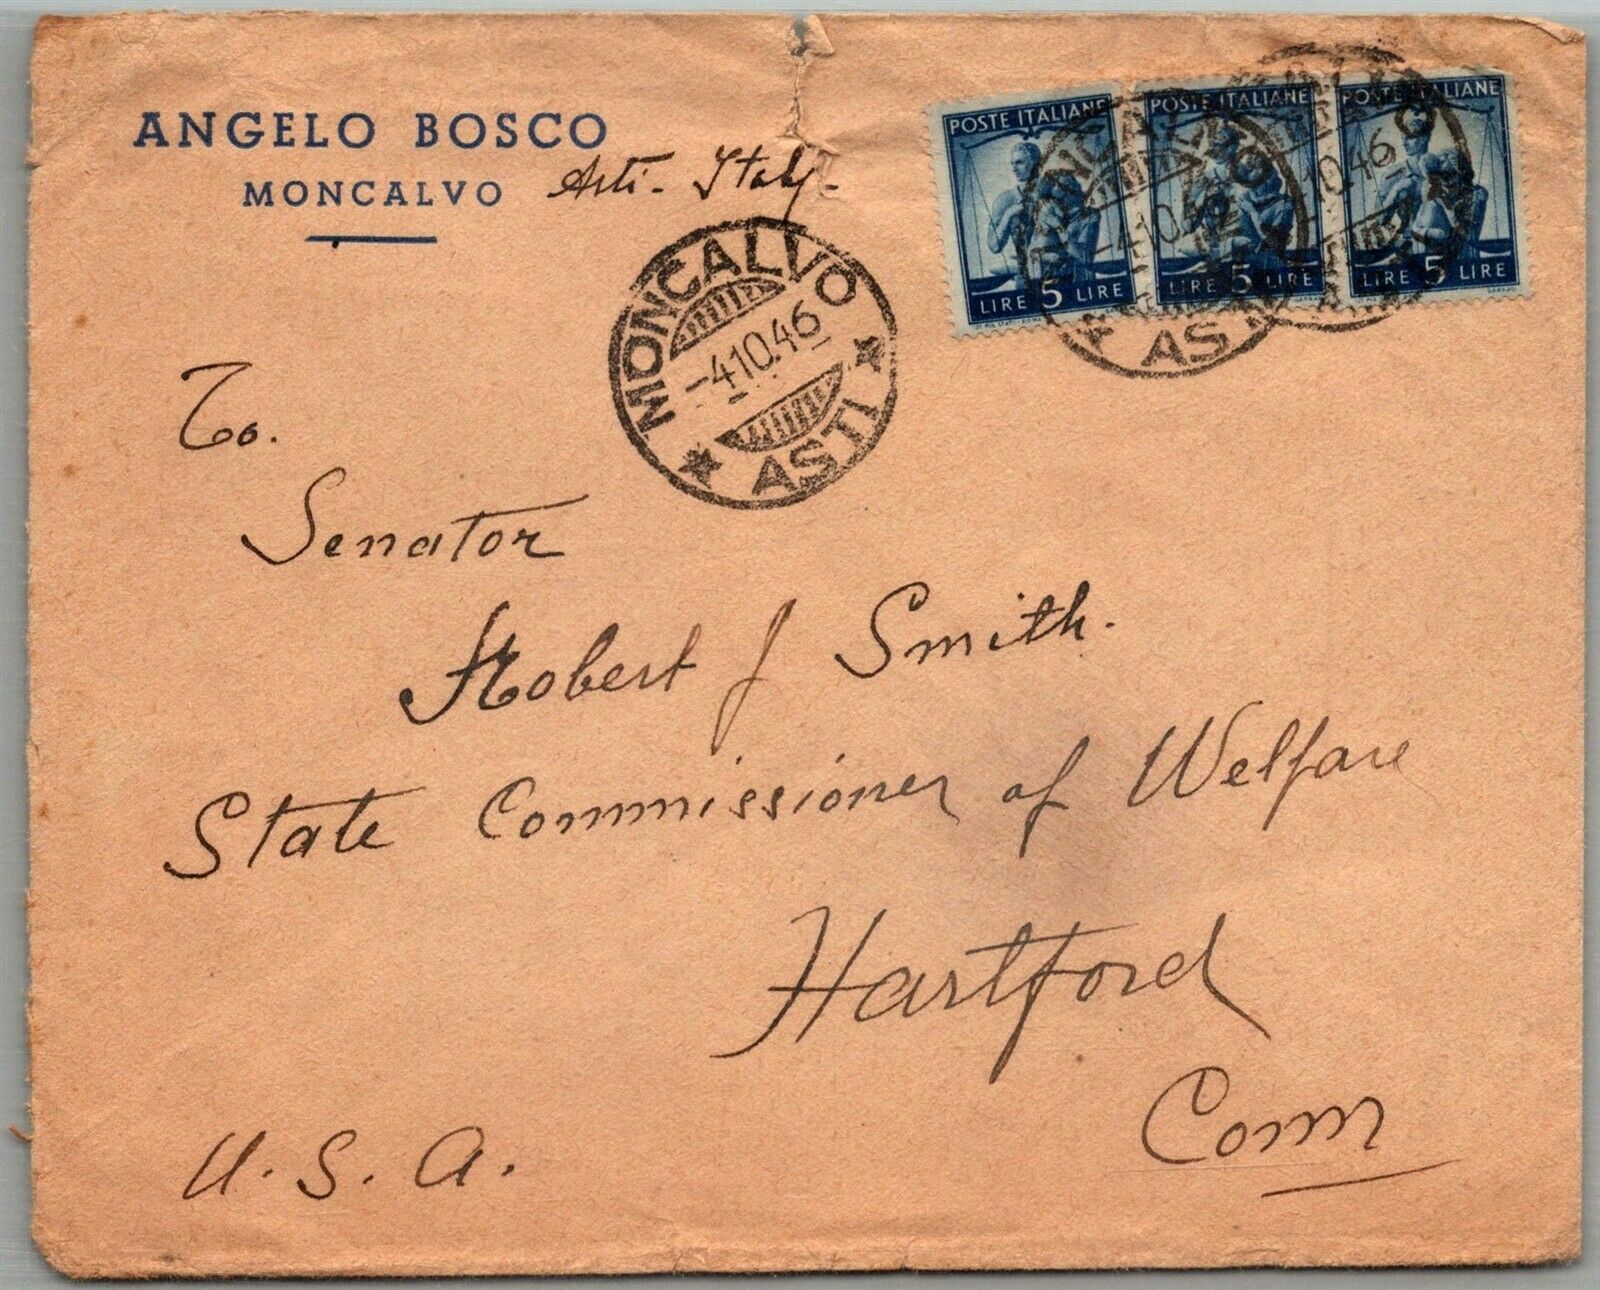 ANGELO BOSCO
MONCALVO
Asti - Italy -
POSTE ITALIANE
LIRE 5 LIRE
POSTE ITALIANE
LIRE 5 LIRE
POSTE ITALIANE
LIRE 5 LIRE
MONCALVO
-4.10.46
ASTI
To.
Senator
Robert J Smith.
State Commissioner of Welfare
Hartford
Conn
U. S. A.